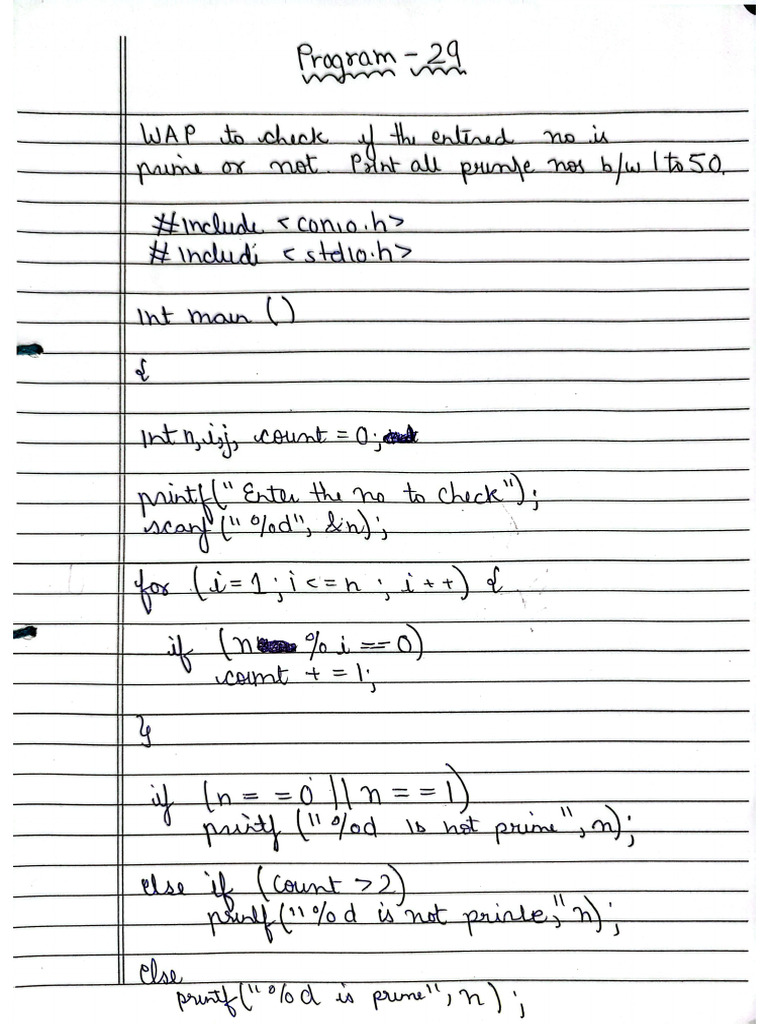 Program - 29
WAP to check if the entered no is
prime or not. Print all prime nos b/w 1 to 50.
#include <conio.h>
#include <stdio.h>
int main ()
{
int n,i,j, count = 0;
printf("Enter the no to check");
scanf("%d", &n);
for (i=1; i<=n ; i++) {
if (n % i ==0)
count +=1;
}
if (n==0 || n==1)
printf ("%d is not prime", n);
else if (count >2)
printf("%d is not prime," n);
else
printf("%d is prime", n);